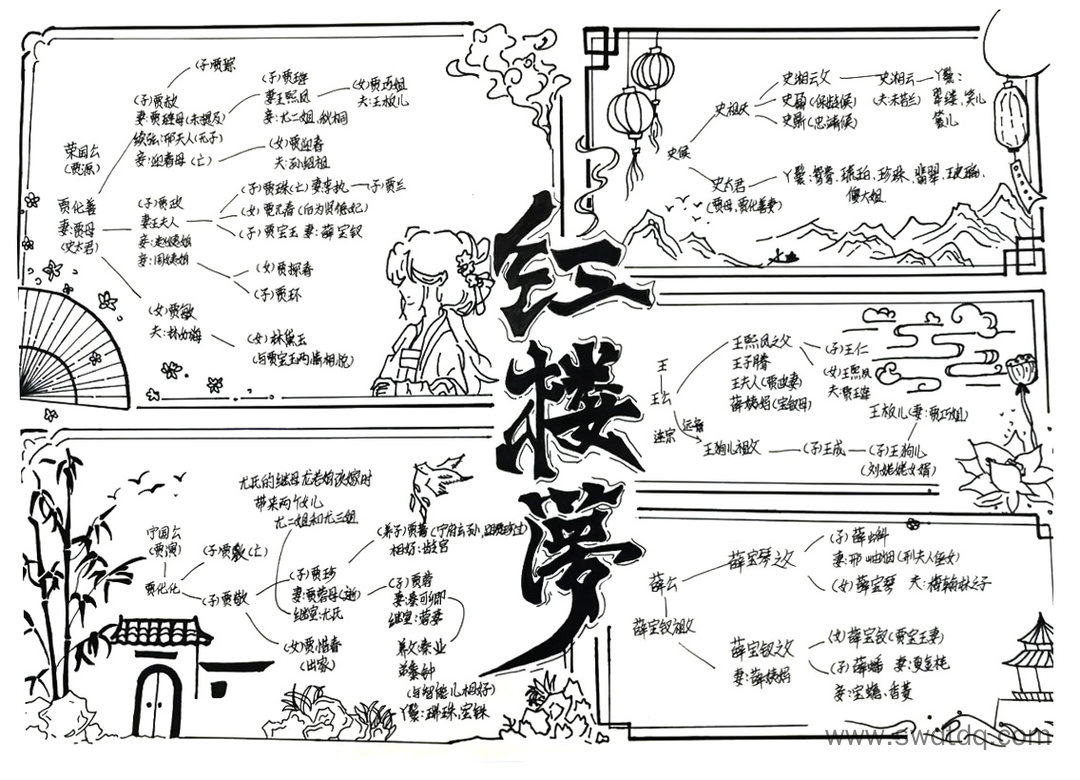 红楼梦
荣国公
(贾源)
贾代善
妻:贾母
(史太君)
(子)贾赦
妻:贾琏母(未提及)
续弦:邢夫人(无子)
妾:迎春母(亡)
(子)贾琮
(子)贾琏
妻王熙凤
妾:尤二姐、秋桐
(女)贾巧姐
夫:王板儿
(女)贾迎春
夫:孙绍祖
(子)贾政
妻王夫人
妾:赵姨娘
妾:周姨娘
(子)贾珠(亡)妻李纨
(子)贾兰
(女)贾元春(曰为贤德妃)
(子)贾宝玉 妻:薛宝钗
(女)贾探春
(子)贾环
(女)贾敏
夫:林如海
(女)林黛玉
(与贾宝玉两情相悦)
史侯
史祖父
史湘云父
史鼐(保龄侯)
史鼎(忠靖侯)
史湘云
(夫未若兰)
丫鬟:
翠缕、笑儿
篆儿
史太君
(贾母,贾代善妻)
丫鬟:鸳鸯、琥珀、珍珠、翡翠、玻璃、
傻大姐.
王
王公
连宗 远亲
王熙凤之父
王子腾
王夫人(贾政妻)
薛姨妈(宝钗母)
(子)王仁
(女)王熙凤
夫:贾琏
王狗儿祖父
(子)王成
(子)王狗儿
(刘姥姥女婿)
王板儿(妻:贾巧姐)
宁国公
(贾演)
贾代化
(子)贾敷(亡)
(子)贾敬
尤氏的继母尤老娘改嫁时
带来两个女儿
尤二姐和尤三姐
(子)贾珍
妻:贾蓉母(逝)
继室:尤氏
(女)贾惜春
(出家)
(养子)贾蔷
相好:龄官
(子)贾蓉
妻:秦可卿
继室:
养父秦业
弟秦钟
(与智能儿相好)
丫鬟:瑞珠,宝珠
薛公
薛宝钗祖父
薛宝琴之父
(子)薛蝌
妻:邢岫烟(刑夫人侄女)
(女)薛宝琴 夫:梅翰林之子
薛宝钗之父
妻:薛姨妈
(女)薛宝钗(贾宝玉妻)
(子)薛蟠 妻:夏金桂
妾:宝蟾、香菱
www.swdtdq.com